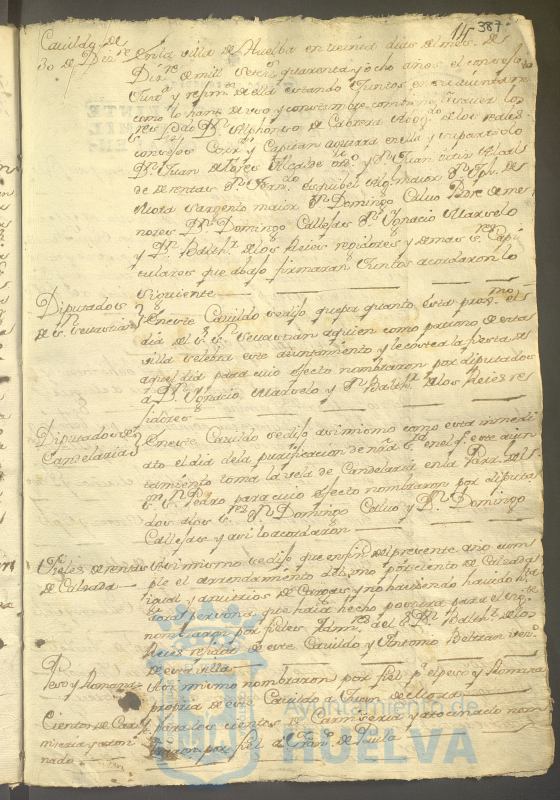 387
Cavildo de
30 de Diz.re
En la villa de Huelva en treinta dias del mes de
Diz.re de mil setez.s quarenta y ocho años el consejo
Just.a y reximt.o de ella estando Juntos en su aiuntam.to
como lo han de uso y costumbre combiene a saver los
D.n Alphonso de Cabrera Abog.do de los reales
consejos Corr.or y Capitan aguerra en ella y su partido
D.n Juan de Alcalde y D.n Juan Alcal
de de rentas D.n Fern.do esquibel Alg.l maior D.n Jph. de
Mora Sargento maior D.n Domingo Calvo Padre de me
nores D.n Domingo Callejas D.n Ygnacio Marzelo
y D.n Balth.r de los Reies rejidores y demas s.res Capi
culares que abajo firmaran Juntos acordaron lo
siguiente
Diputados
de S. Sevastian
En este Cavildo se dijo que por quanto esta prox.mo el
dia del S.r S. Sevastian a quien como patrono de esta
villa celebra este aiuntamiento y le costea la fiesta de
aquel dia para cuio efecto nombraron por diputados
a D.n Ygnacio Marzelo y D.n Balth.r de los Reies re
jidores
Diputados de
Candelaria
En este Cavildo se dijo asimismo como esta inmedi
ato el dia de la purificacion de nra S.ra en el q.e este aiun
tamiento toma la vela de Candelaria en la Parrq.l del
S. S. Pedro para cuio efecto nombraron por diputa
dos a los s.res D.n Domingo Calvo y D.n Domingo
Callejas y asi lo acordaron
Fieles de rentas
de Calzada
Asimismo se dijo que en fin del presente año cum
ple el arrendamiento del uno por ciento de Calzada
y arvitrios de Carnes y no haviendo havido
persona que haia hecho postura para el
nombraron por fieles Adm.res a el S. D.n Balth.r de los
Reies rejidor de este Cavildo y Antonio Beltran vez.o
de esta villa
Peso y Romana
Asi mismo nombraron por fiel p.a el peso y Romana
propria de este Cavildo a Juan de Mora
Cientos de Car
niceria y
nado
Y para los cientos de Carniceria y nom
braron por fiel a Fran.co de Avila
Ayuntamiento de
HUELVA